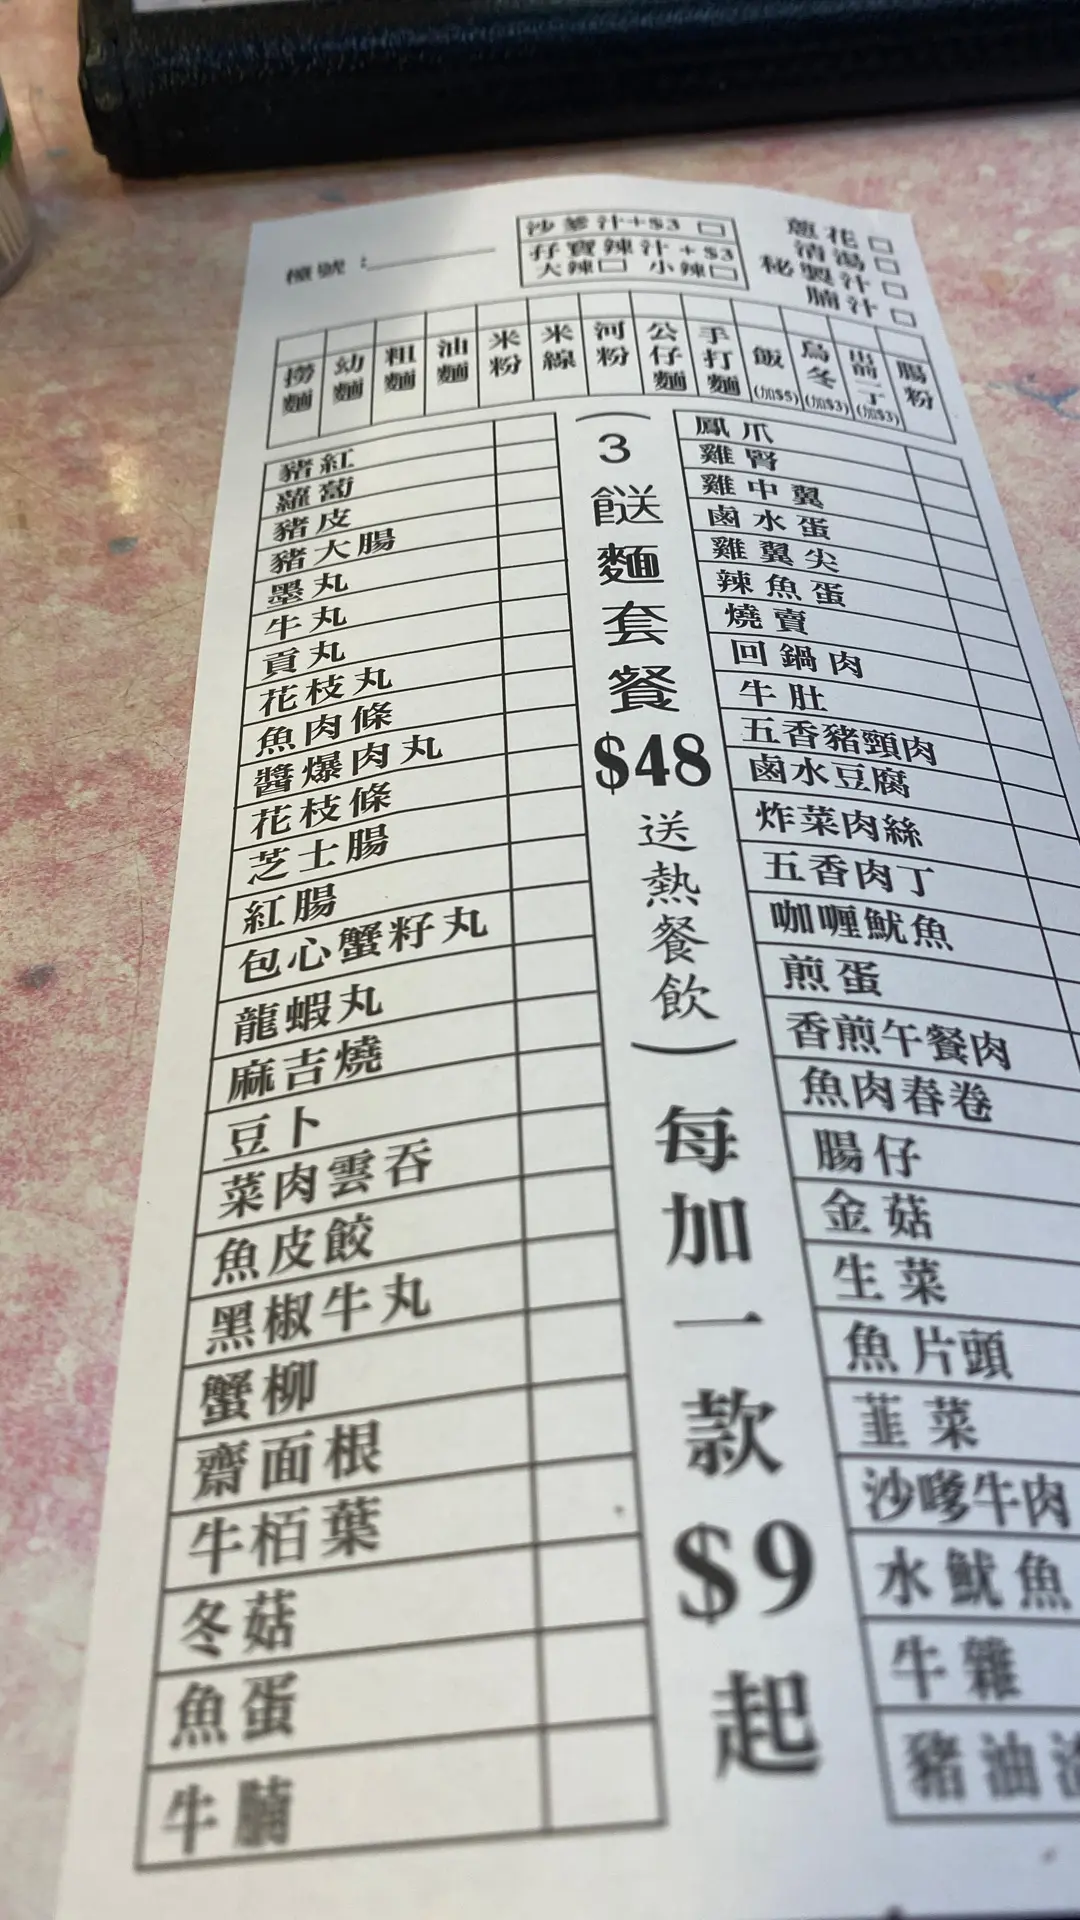 檯號：
沙爹汁+$3
孖寶辣汁+$3
大辣 小辣
蔥花
清湯
秘製汁
腩汁
撈麵
幼麵
粗麵
油麵
米粉
米線
河粉
公仔麵
手打麵
飯(加$5)
烏冬(加$3)
出前一丁(加$3)
腸粉
豬紅
蘿蔔
豬皮
豬大腸
墨丸
牛丸
貢丸
花枝丸
魚肉條
醬爆肉丸
花枝條
芝士腸
紅腸
包心蟹籽丸
龍蝦丸
麻吉燒
豆卜
菜肉雲吞
魚皮餃
黑椒牛丸
蟹柳
齋面根
牛栢葉
冬菇
魚蛋
牛腩
(3餸麵套餐$48送熱餐飲)每加一款$9起
鳳爪
雞腎
雞中翼
鹵水蛋
雞翼尖
辣魚蛋
燒賣
回鍋肉
牛肚
五香豬頸肉
鹵水豆腐
炸菜肉絲
五香肉丁
咖喱魷魚
煎蛋
香煎午餐肉
魚肉春卷
腸仔
金菇
生菜
魚片頭
韮菜
沙嗲牛肉
水魷魚
牛雜
豬油渣